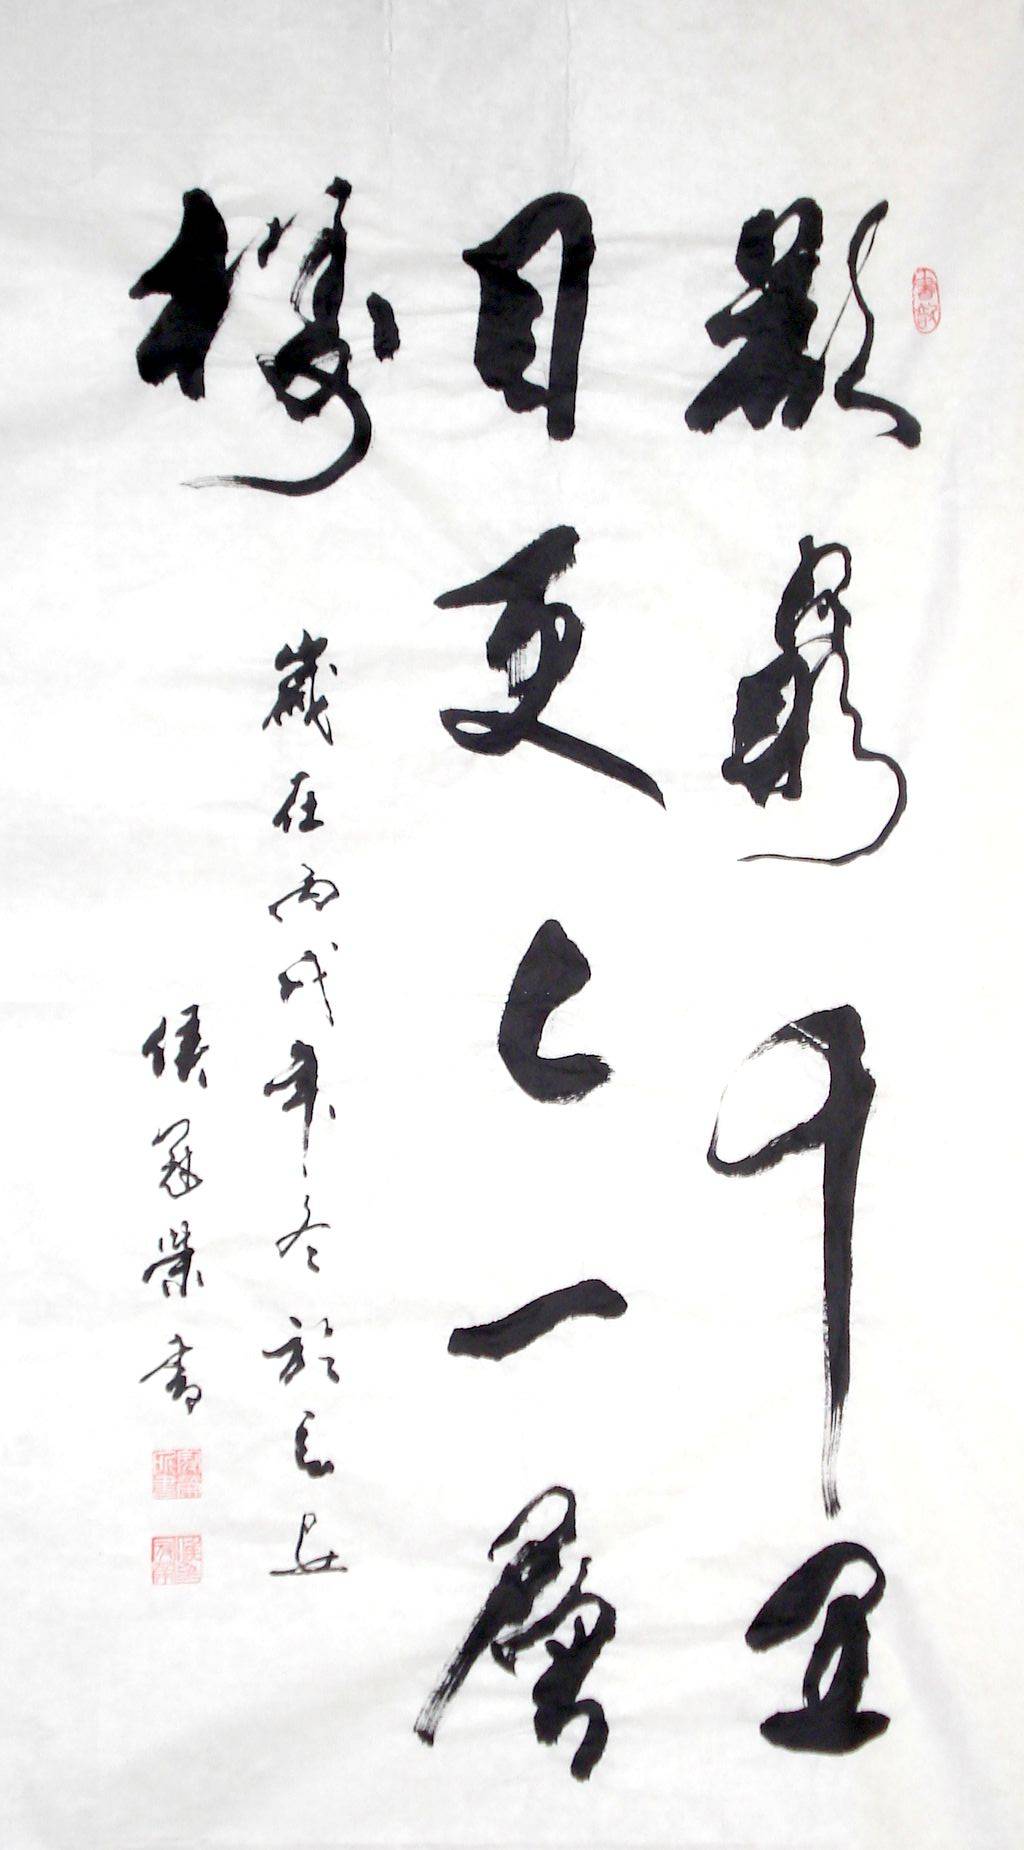 欲窮千里
目更上一層
樓
歲在丙戌年冬於長安
侯冠榮書